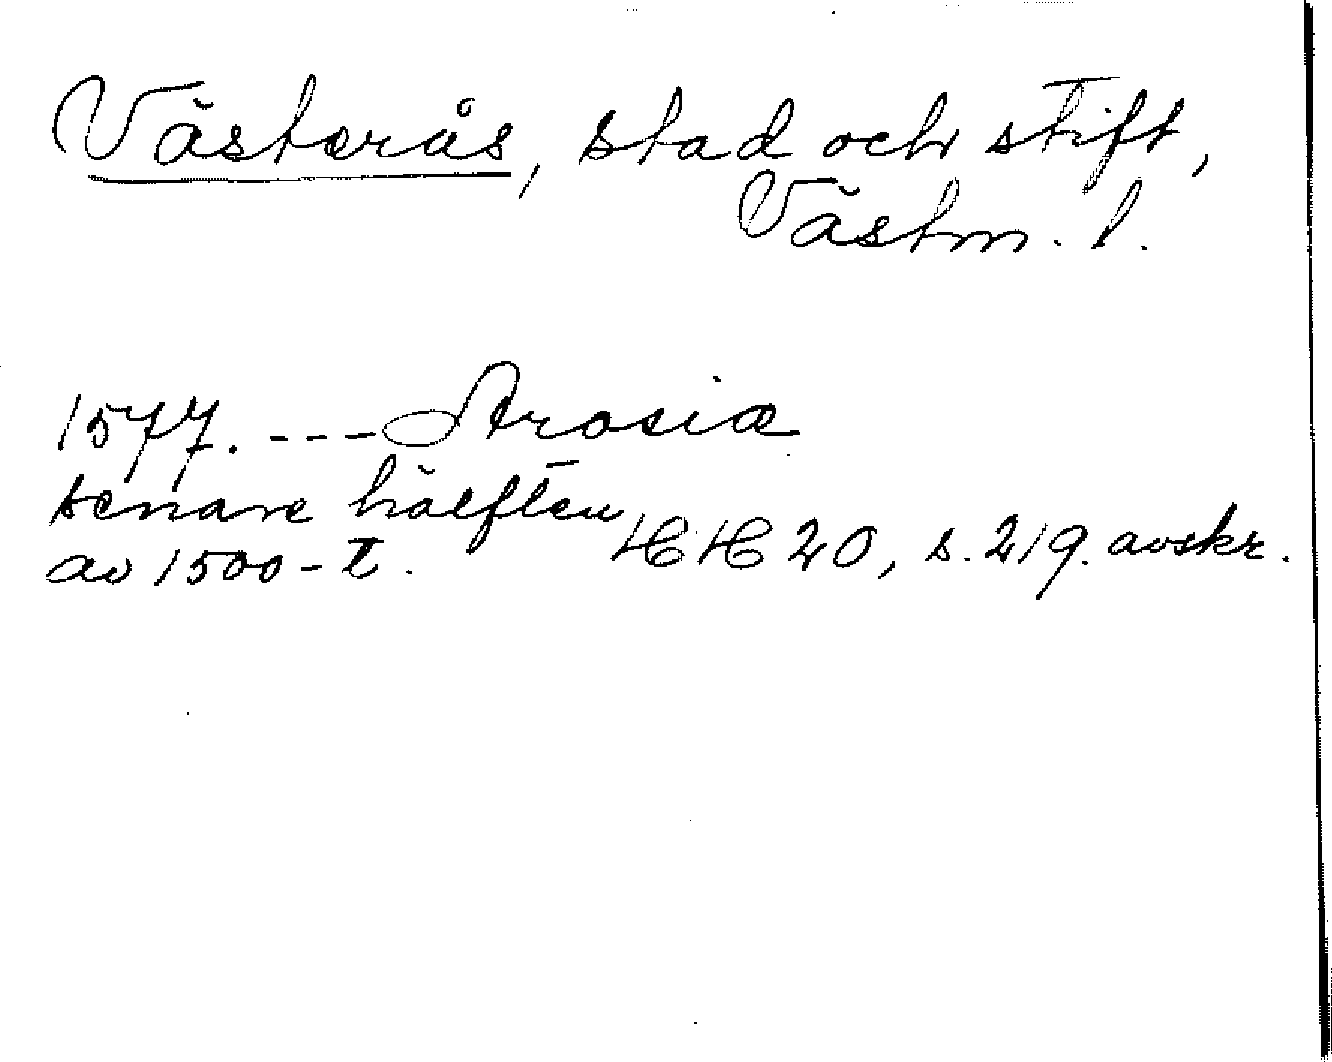 Västerås, stad och stift,
Västm. l.
1577. --- Arosiæ
senare hälften
av 1500-t. HH 20, s. 219. avskr.